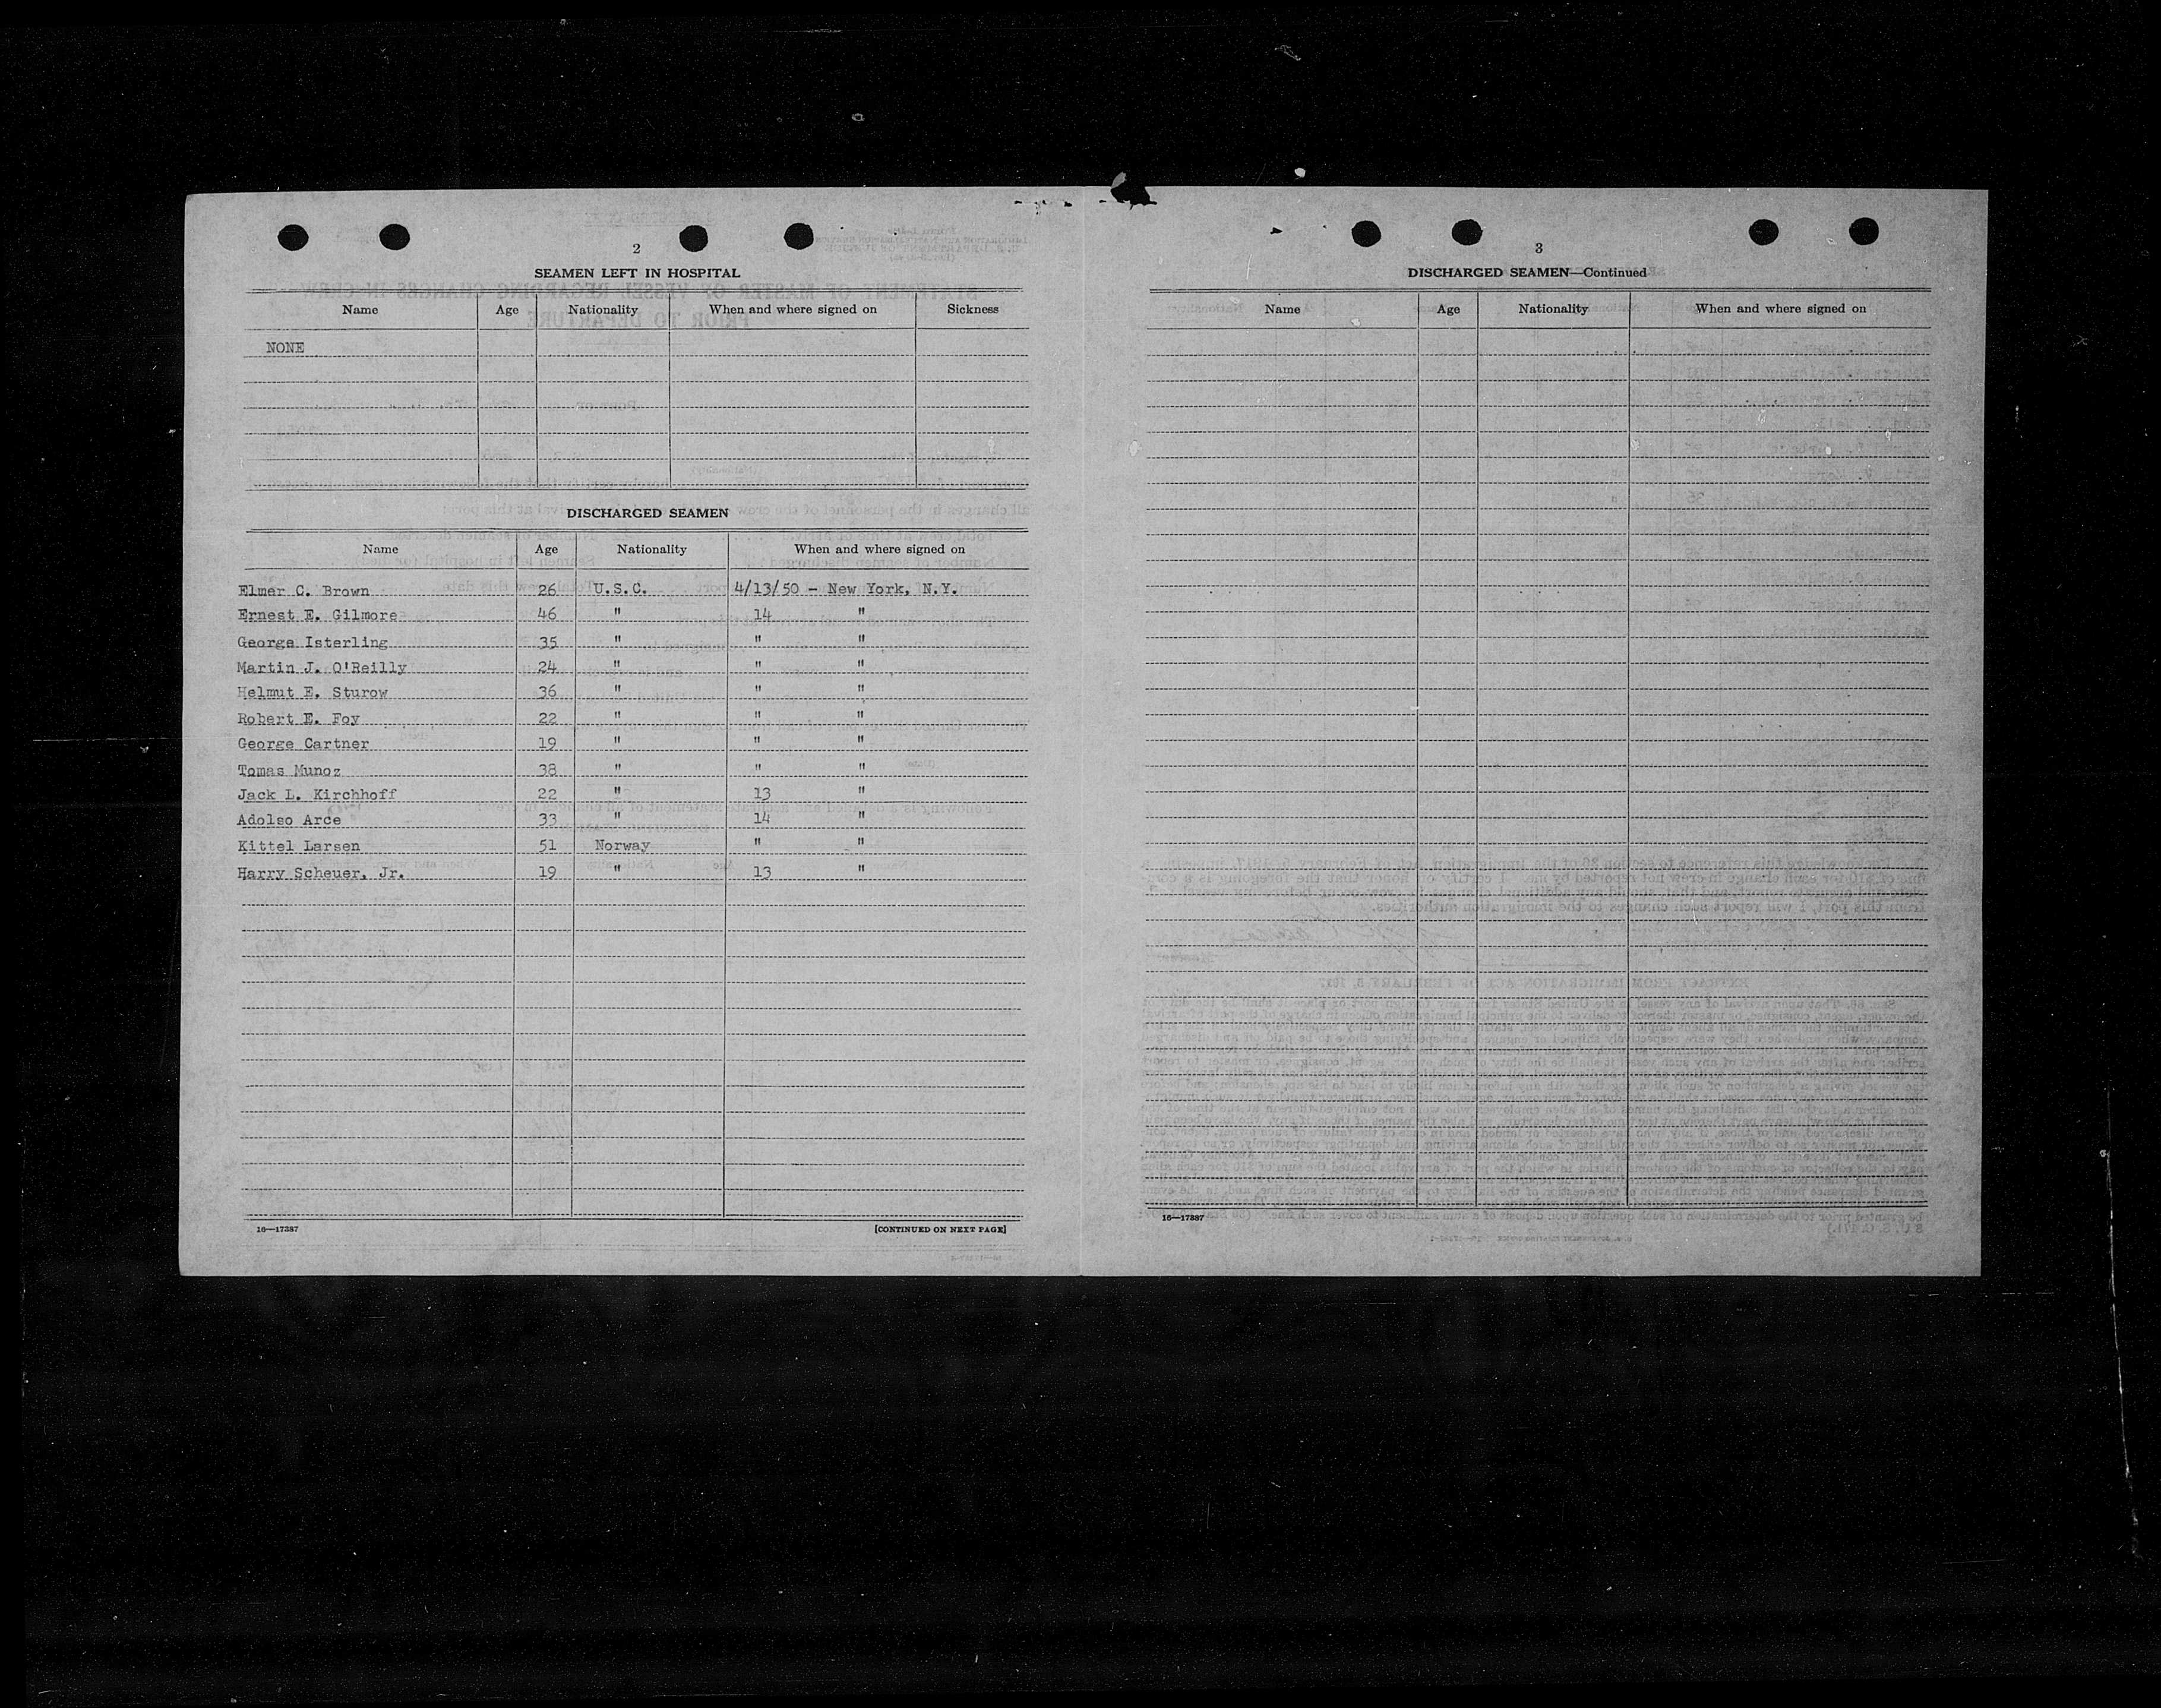 2
SEAMEN LEFT IN HOSPITAL
Name Age Nationality When and where signed on Sickness
NONE
DISCHARGED SEAMEN
Name Age Nationality When and where signed on
Elmer C. Brown 26 U.S.C. 4/13/50 - New York, N.Y.
Ernest E. Gilmore 46 " 14 "
George Isterling 35 " " "
Martin J. O'Reilly 24 " " "
Helmut E. Sturow 36 " " "
Robert E. Foy 22 " " "
George Cartner 19 " " "
Tomas Munoz 38 " " "
Jack L. Kirchhoff 22 " 13 "
Adolso Arce 33 " 14 "
Kittel Larsen 51 Norway " "
Harry Scheuer, Jr. 19 " 13 "
16—17387 [CONTINUED ON NEXT PAGE]
3
DISCHARGED SEAMEN—Continued
Name Age Nationality When and where signed on
16—17387